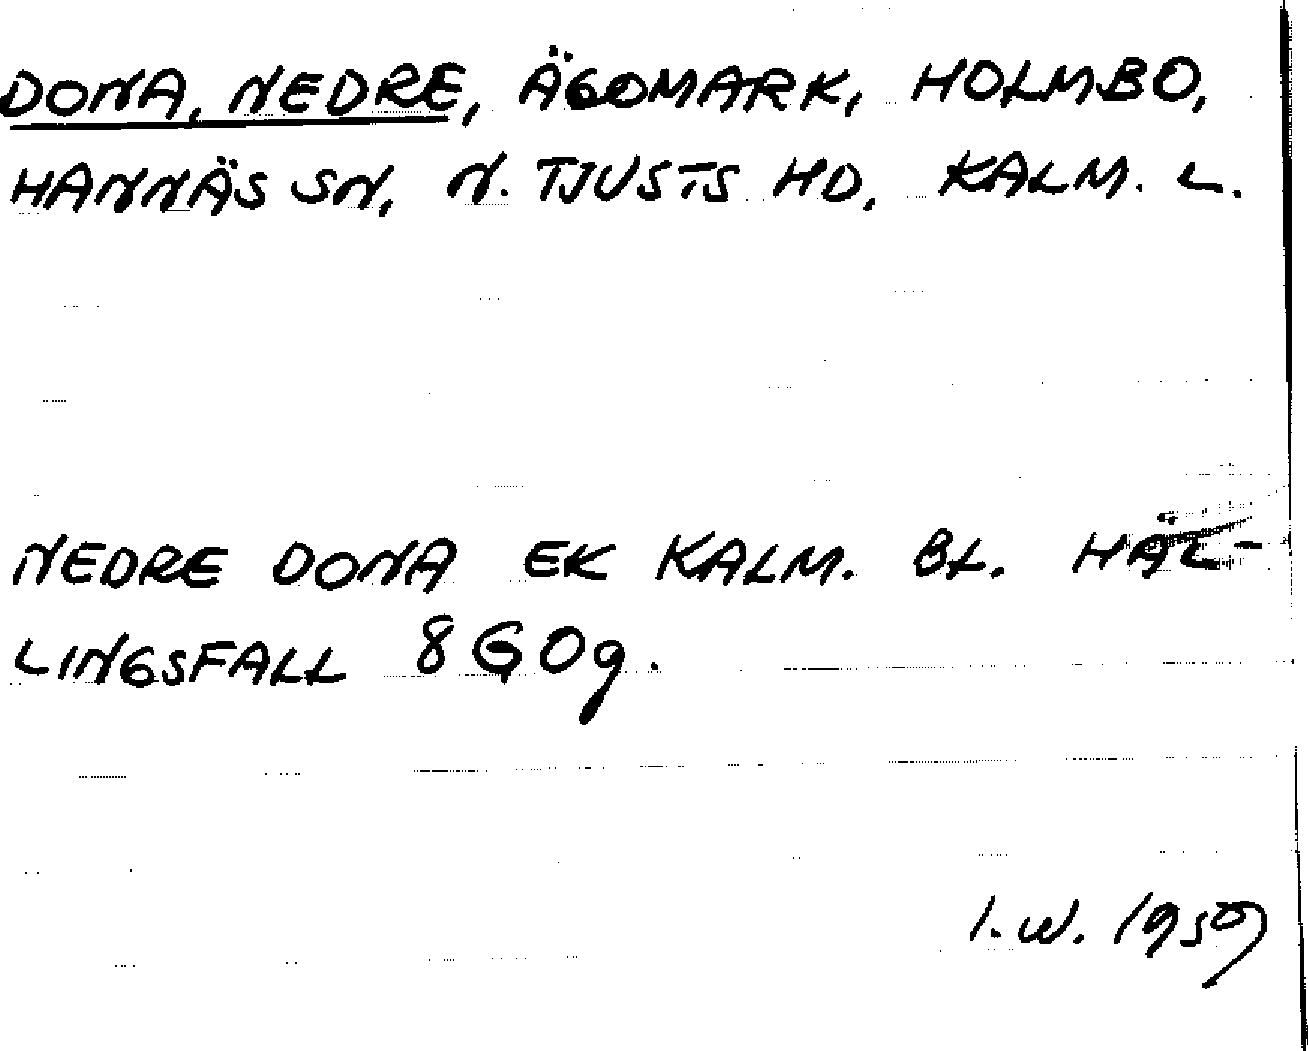 DONA, NEDRE, ÄGOMARK, HOLMBO,
HANNÄS SN, N. TJUSTS HD, KALM. L.
NEDRE DONA EK KALM. BL. HÄL-
LINGSFALL 8G0g.
I.W. 1959